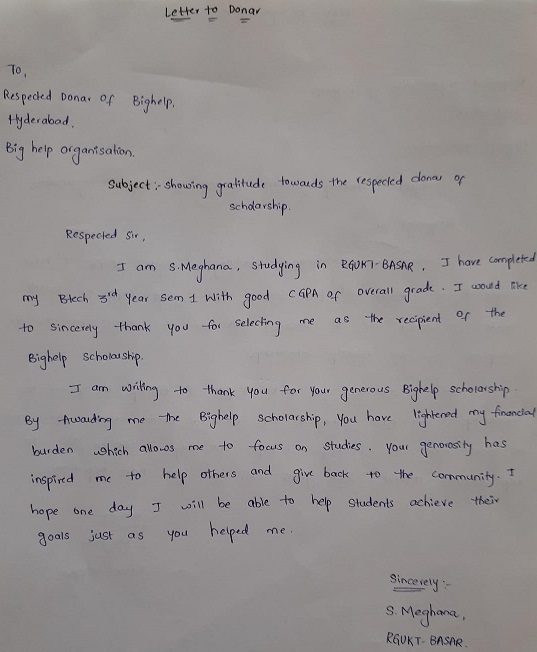 Letter to Donar
To,
Respected Donar of Bighelp.
Hyderabad.
Big help organisation.
Subject:- showing gratitude towards the respected donar of
scholarship.
Respected Sir,
I am S.Meghana, studying in RGUKT-BASAR. I have completed
my Btech 3rd Year Sem 1 With good CGPA of overall grade. I would like
to sincerely thank you for selecting me as the recipient of the
Bighelp Scholarship.
I am writing to thank you for your generous Bighelp scholarship.
By Awarding me the Bighelp Scholarship, you have lightened my financial
burden which allows me to focus on studies. Your generosity has
inspired me to help others and give back to the community. I
hope one day I will be able to help students achieve their
goals just as you helped me.
Sincerely:-
S. Meghana,
RGUKT-BASAR.